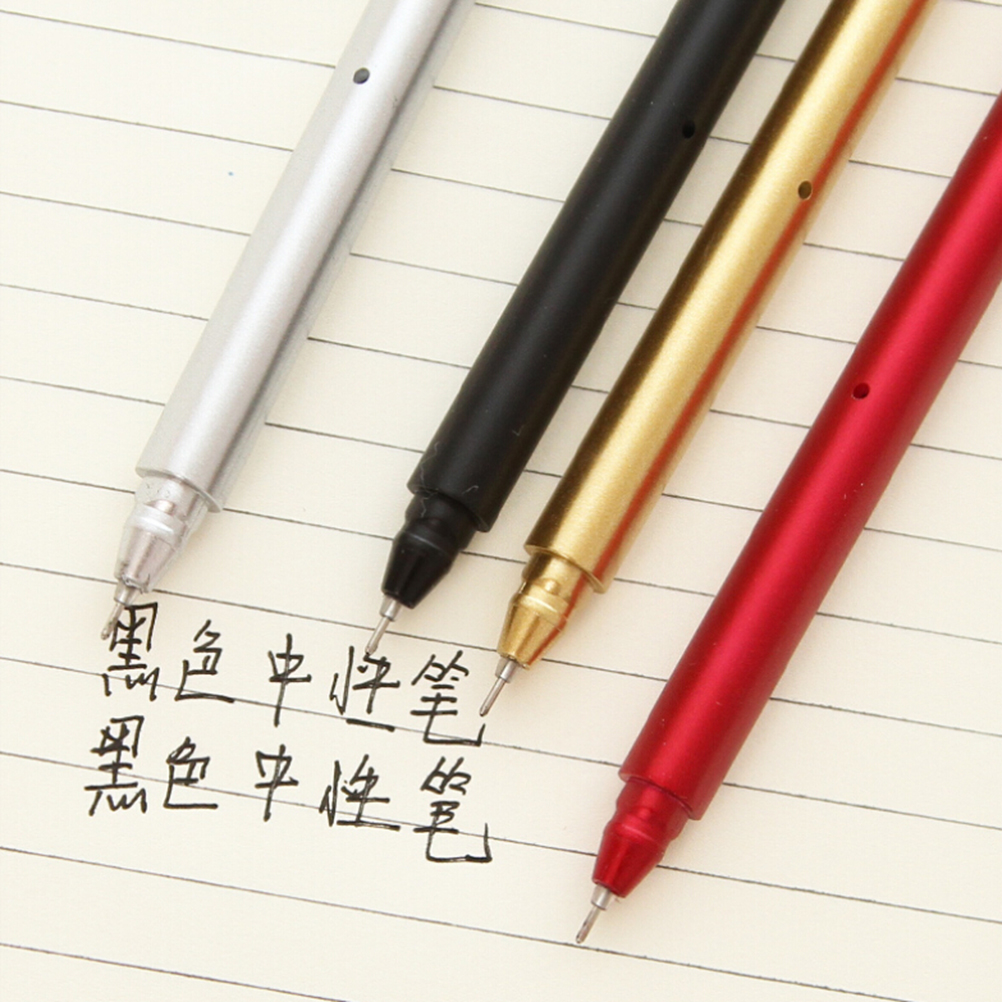 黑色中性笔
黑色中性笔